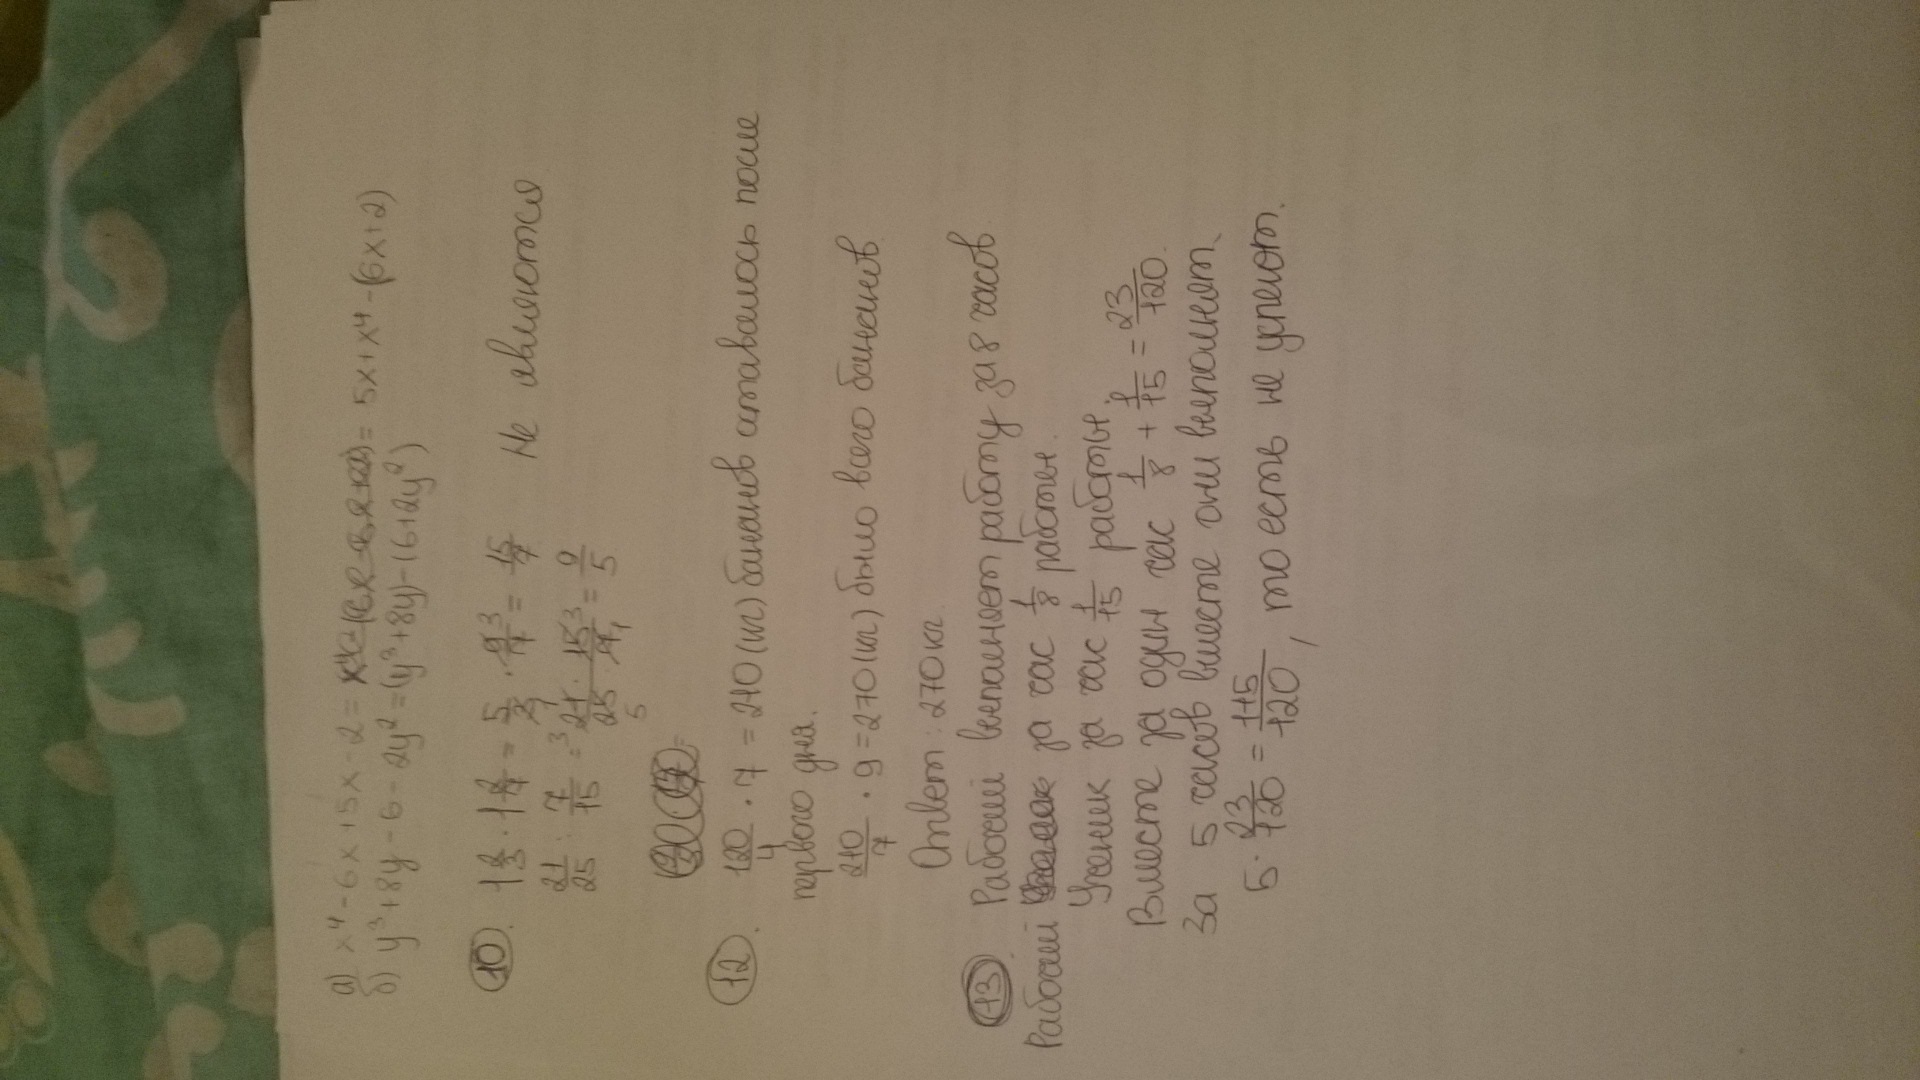 а) x⁴ - 6x + 15x - 2 = = 5x + x⁴ - (6x + 2)
б) y³ + 8y - 6 - 2y² = (y³ + 8y) - (6 + 2y²)
10. 1 2/3 · 1 2/7 = 5/3 · 9/7 = 15/7 Не являются
21/25 : 7/15 = 21/25 · 15/7 = 9/5
12. 120/4 · 7 = 210 (кг) бананов оставалось после
первого дня.
210/7 · 9 = 270 (кг) было всего бананов
Ответ: 270 кг
13. Рабочий выполняет работу за 8 часов
Рабочий за час 1/8 работы.
Ученик за час 1/15 работы.
Вместе за один час 1/8 + 1/15 = 23/120.
За 5 часов вместе они выполняют
5 · 23/120 = 115/120, то есть не успеют.